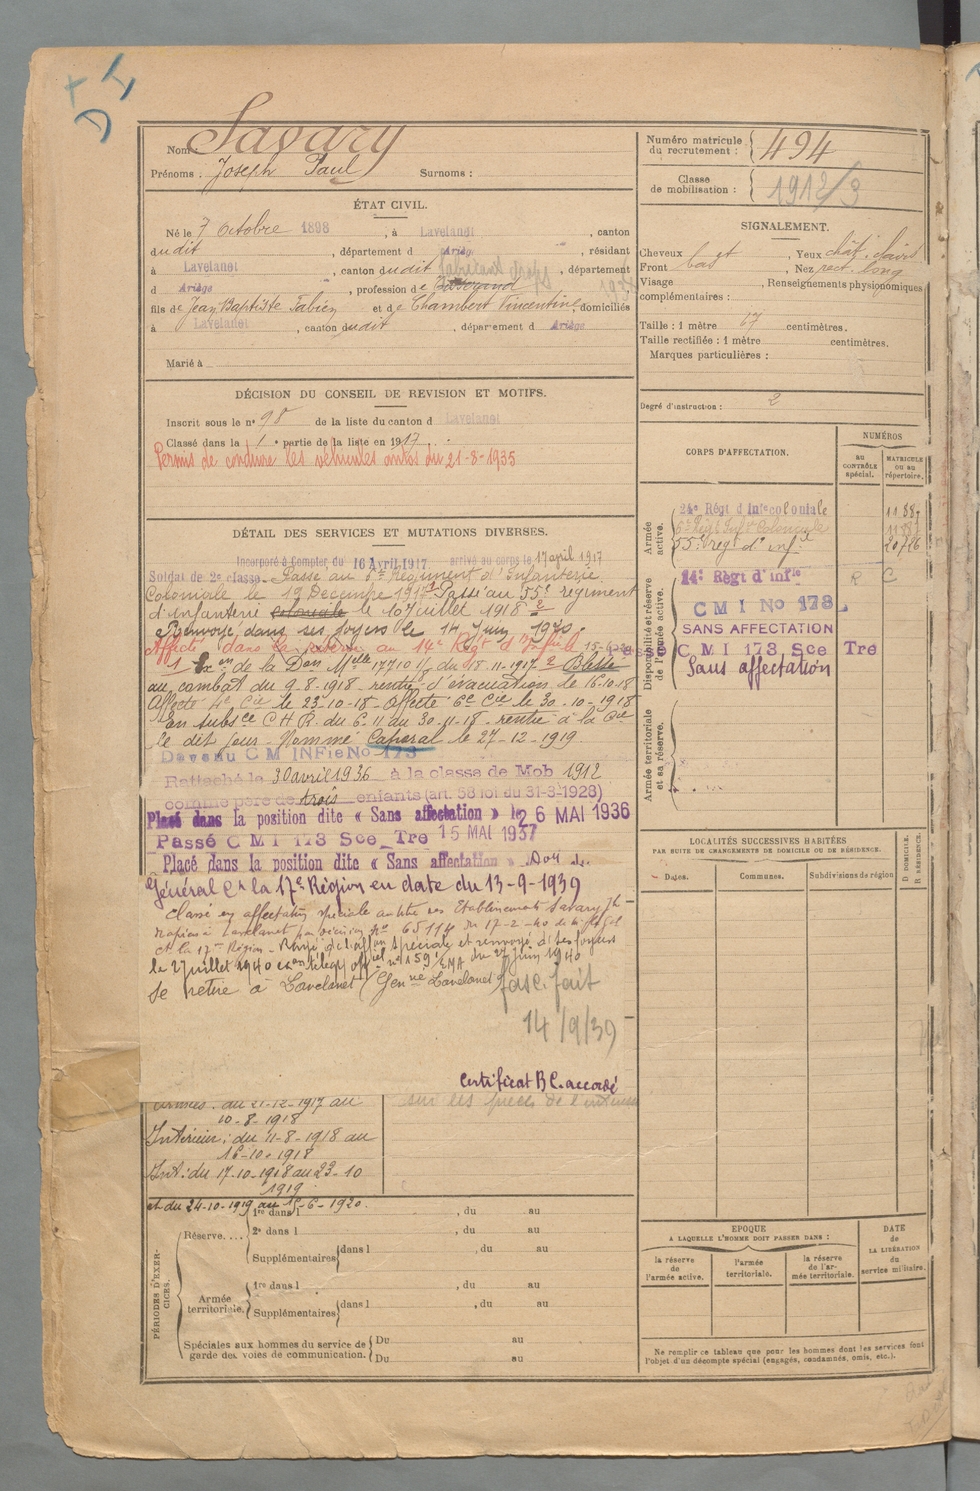 Nom : Savary
Prénoms : Joseph Paul Surnoms :
Numéro matricule du recrutement : 494
Classe de mobilisation : 1912/3
ÉTAT CIVIL.
Né le 7 Octobre 1898, à Lavelanet, canton
dudit, département d Ariège, résidant
à Lavelanet, canton dudit, département
d Ariège, profession de
fils de Jean Baptiste Fabien et de Chambert Vincentine, domiciliés
à Lavelanet, canton dudit, département d Ariège
Marié à
SIGNALEMENT.
Cheveux chât, Yeux chât. clairs
Front bas, Nez rect. long
Visage , Renseignements physionomiques
complémentaires :
Taille : 1 mètre 67 centimètres.
Taille rectifiée : 1 mètre centimètres.
Marques particulières :
Degré d'instruction : 2
DÉCISION DU CONSEIL DE REVISION ET MOTIFS.
Inscrit sous le n° 98 de la liste du canton d Lavelanet
Classé dans la 1e partie de la liste en 1917.
Permis de conduire les véhicules autos du 21-8-1935
DÉTAIL DES SERVICES ET MUTATIONS DIVERSES.
Incorporé à Compter du 16 Avril 1917 arrivé au corps le 17 april 1917
Soldat de 2e classe. Passé au 6e Régiment d'Infanterie
Coloniale le 19 Décembre 1917. Passé au 55e régiment
d'infanterie coloniale le 10 juillet 1918
Renvoyé dans ses foyers le 14 Juin 1920.
Affecté dans la réserve au 14e Régt d'Infie
de la Don Melle 17710 1/8 du 18-11-1917 Blessé
au combat du 9-8-1918 rentré d'évacuation le 16-10-18
Affecté 4e Cie le 23-10-18. Affecté 6e Cie le 30-10-1918
En subsce C H R du 6-11 au 30-11-18 - rentré à la Cie
le dit jour - Nommé Caporal le 27-12-1919.
Devenu C M INFie No 173
Rattaché le 30 avril 1936 à la classe de Mob 1912
comme père de trois enfants (art. 58 loi du 31-3-1928)
Placé dans la position dite « Sans affectation » le 26 MAI 1936
Passé C M I 173 Sce Tre 15 MAI 1937
Placé dans la position dite « Sans affectation »
Général Ct la 17e Région en date du 13-9-1939
Classé en affectation spéciale au titre des Etablissements Savary
à Lavelanet par décision no 6511 du 17-2-40
et la 17e Région - Rayé de l'affon spéciale et renvoyé dans ses foyers
le 27 juillet 1940 no 159 EMA du 27 juin 1940
Se retire à Lavelanet (Genie Lavelanet)
fasc. fait
14/9/39
Certificat B C. accordé
Armées : du 21-12-1917 au
10-8-1918
Intérieur : du 11-8-1918 au
16-10-1918
Int. : du 17-10-1918 au 23-10
1919
et du 24-10-1919 au 15-6-1920.
sur les pieds de
CORPS D'AFFECTATION.
NUMÉROS
AU CONTRÔLE spécial.
MATRICULE ou au répertoire.
Armée active.
24e Régt d'Infe coloniale 11887
6e Régt Infie Coloniale
55e régt d'infie 20726
Disponibilité et réserve de l'armée active.
14e Régt d'infie R C
C M I No 173
SANS AFFECTATION
C M I 173 Sce Tre
Sans affectation
Armée territoriale et sa réserve.
LOCALITÉS SUCCESSIVES HABITÉES
PAR SUITE DE CHANGEMENTS DE DOMICILE OU DE RÉSIDENCE.
Dates. Communes. Subdivisions de région
D DOMICILE.
R RÉSIDENCE.
PÉRIODES D'EXERCICES.
Réserve.... 1re dans l , du au
2e dans l , du au
Supplémentaires dans l , du au
Armée territoriale. 1re dans l , du au
Supplémentaires dans l , du au
Spéciales aux hommes du service de garde des voies de communication. Du au
Du au
EPOQUE
A LAQUELLE L'HOMME DOIT PASSER DANS :
la réserve de l'armée active.
l'armée territoriale.
la réserve de l'armée territoriale.
DATE de LA LIBÉRATION du service militaire.
Ne remplir ce tableau que pour les hommes dont les services font
l'objet d'un décompte spécial (engagés, condamnés, omis, etc.).